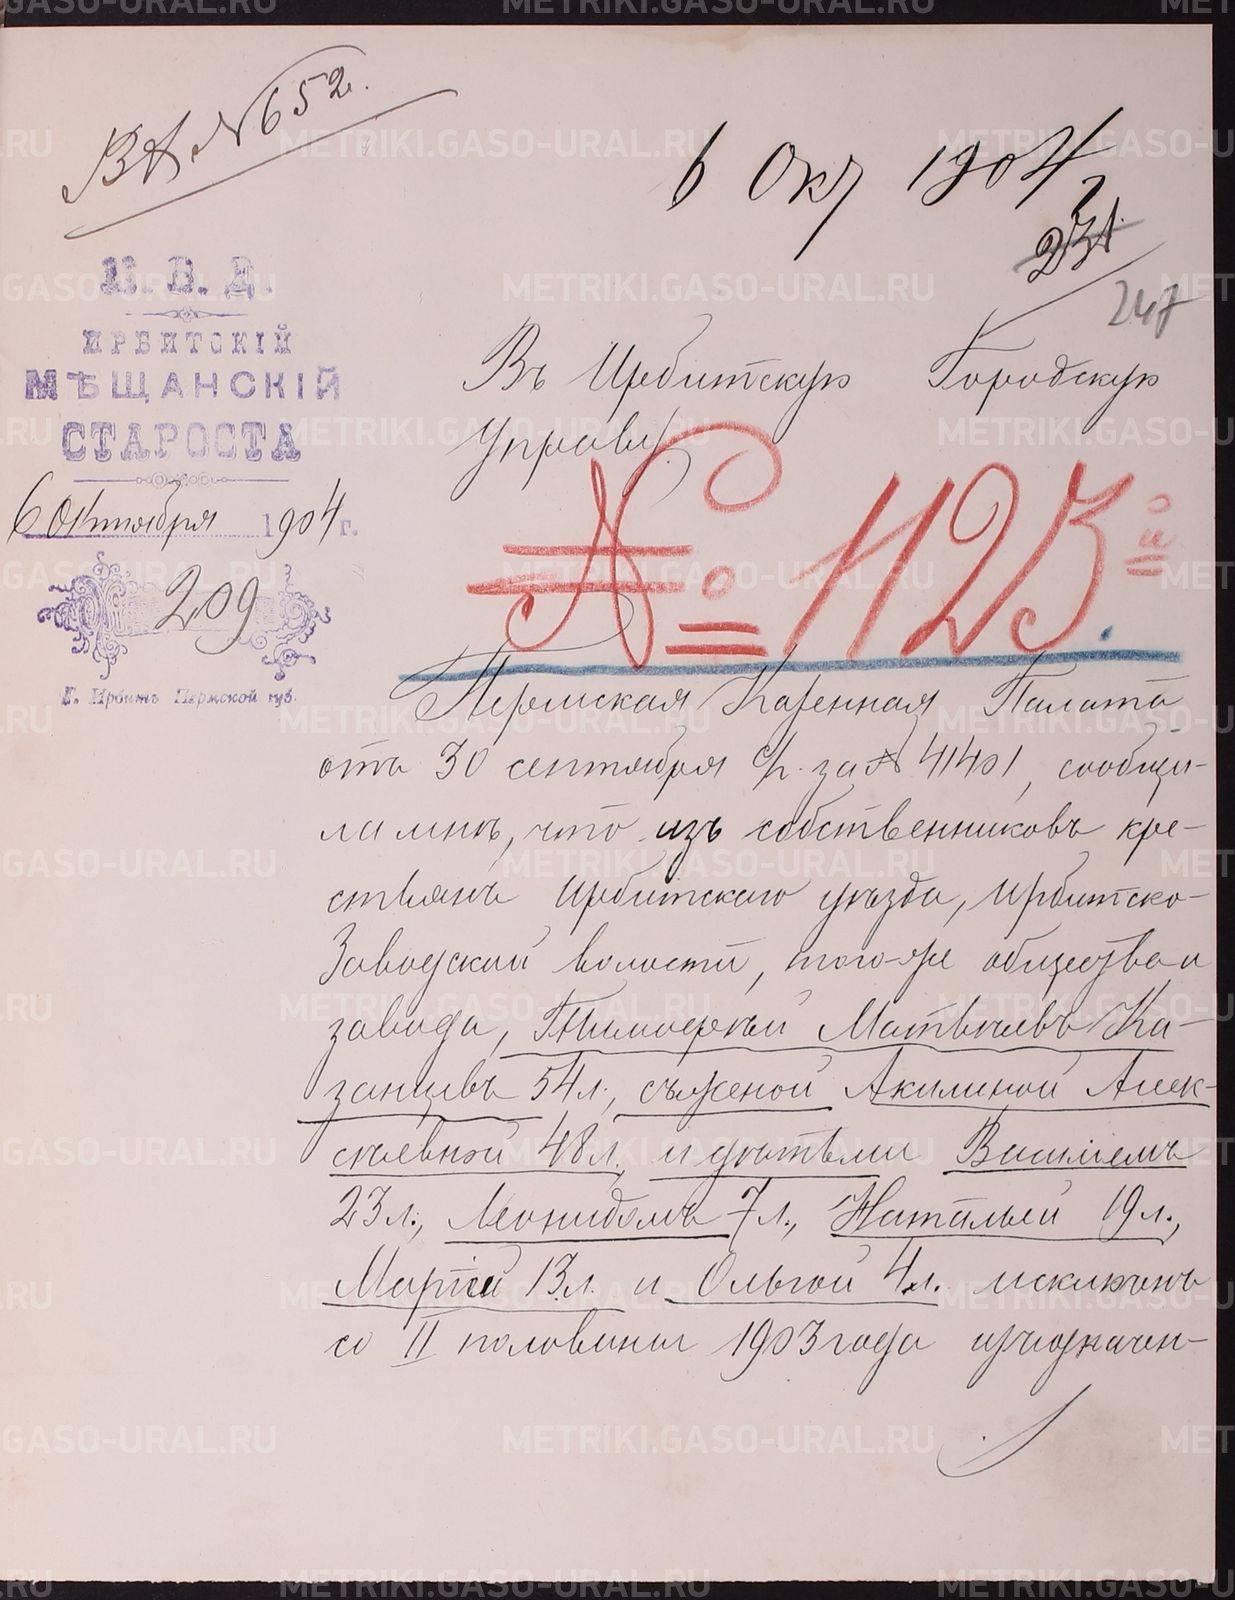 Вх. № 652.
6 Окт 1904
231.
247
М. В. Д.
ИРБИТСКІЙ
МѢЩАНСКІЙ
СТАРОСТА
6 Октября 1904 г.
№ 209
Г. Ирбитъ Пермской губ.
Въ Ирбитскую Городскую
Управу
№ 1123
Пермская Казенная Палата
отъ 30 сентября с/г. за № 41401, сообщи-
ла мнѣ, что изъ собственниковъ кре-
стьянъ Ирбитскаго уѣзда, Ирбитско-
Заводской волости, того-же общества и
завода, Тимофей Матвѣевъ Ка-
занцевъ 54 л., съ женой Акилиной Алек-
сѣевной 48 л. и дѣтьми Василіемъ
23 л., Леонидомъ 7 л., Натальей 19 л.,
Маріей 13 л. и Ольгой 4 л. исключенъ
со II половины 1903 года изъ означен-
METRIKI.GASO-URAL.RU